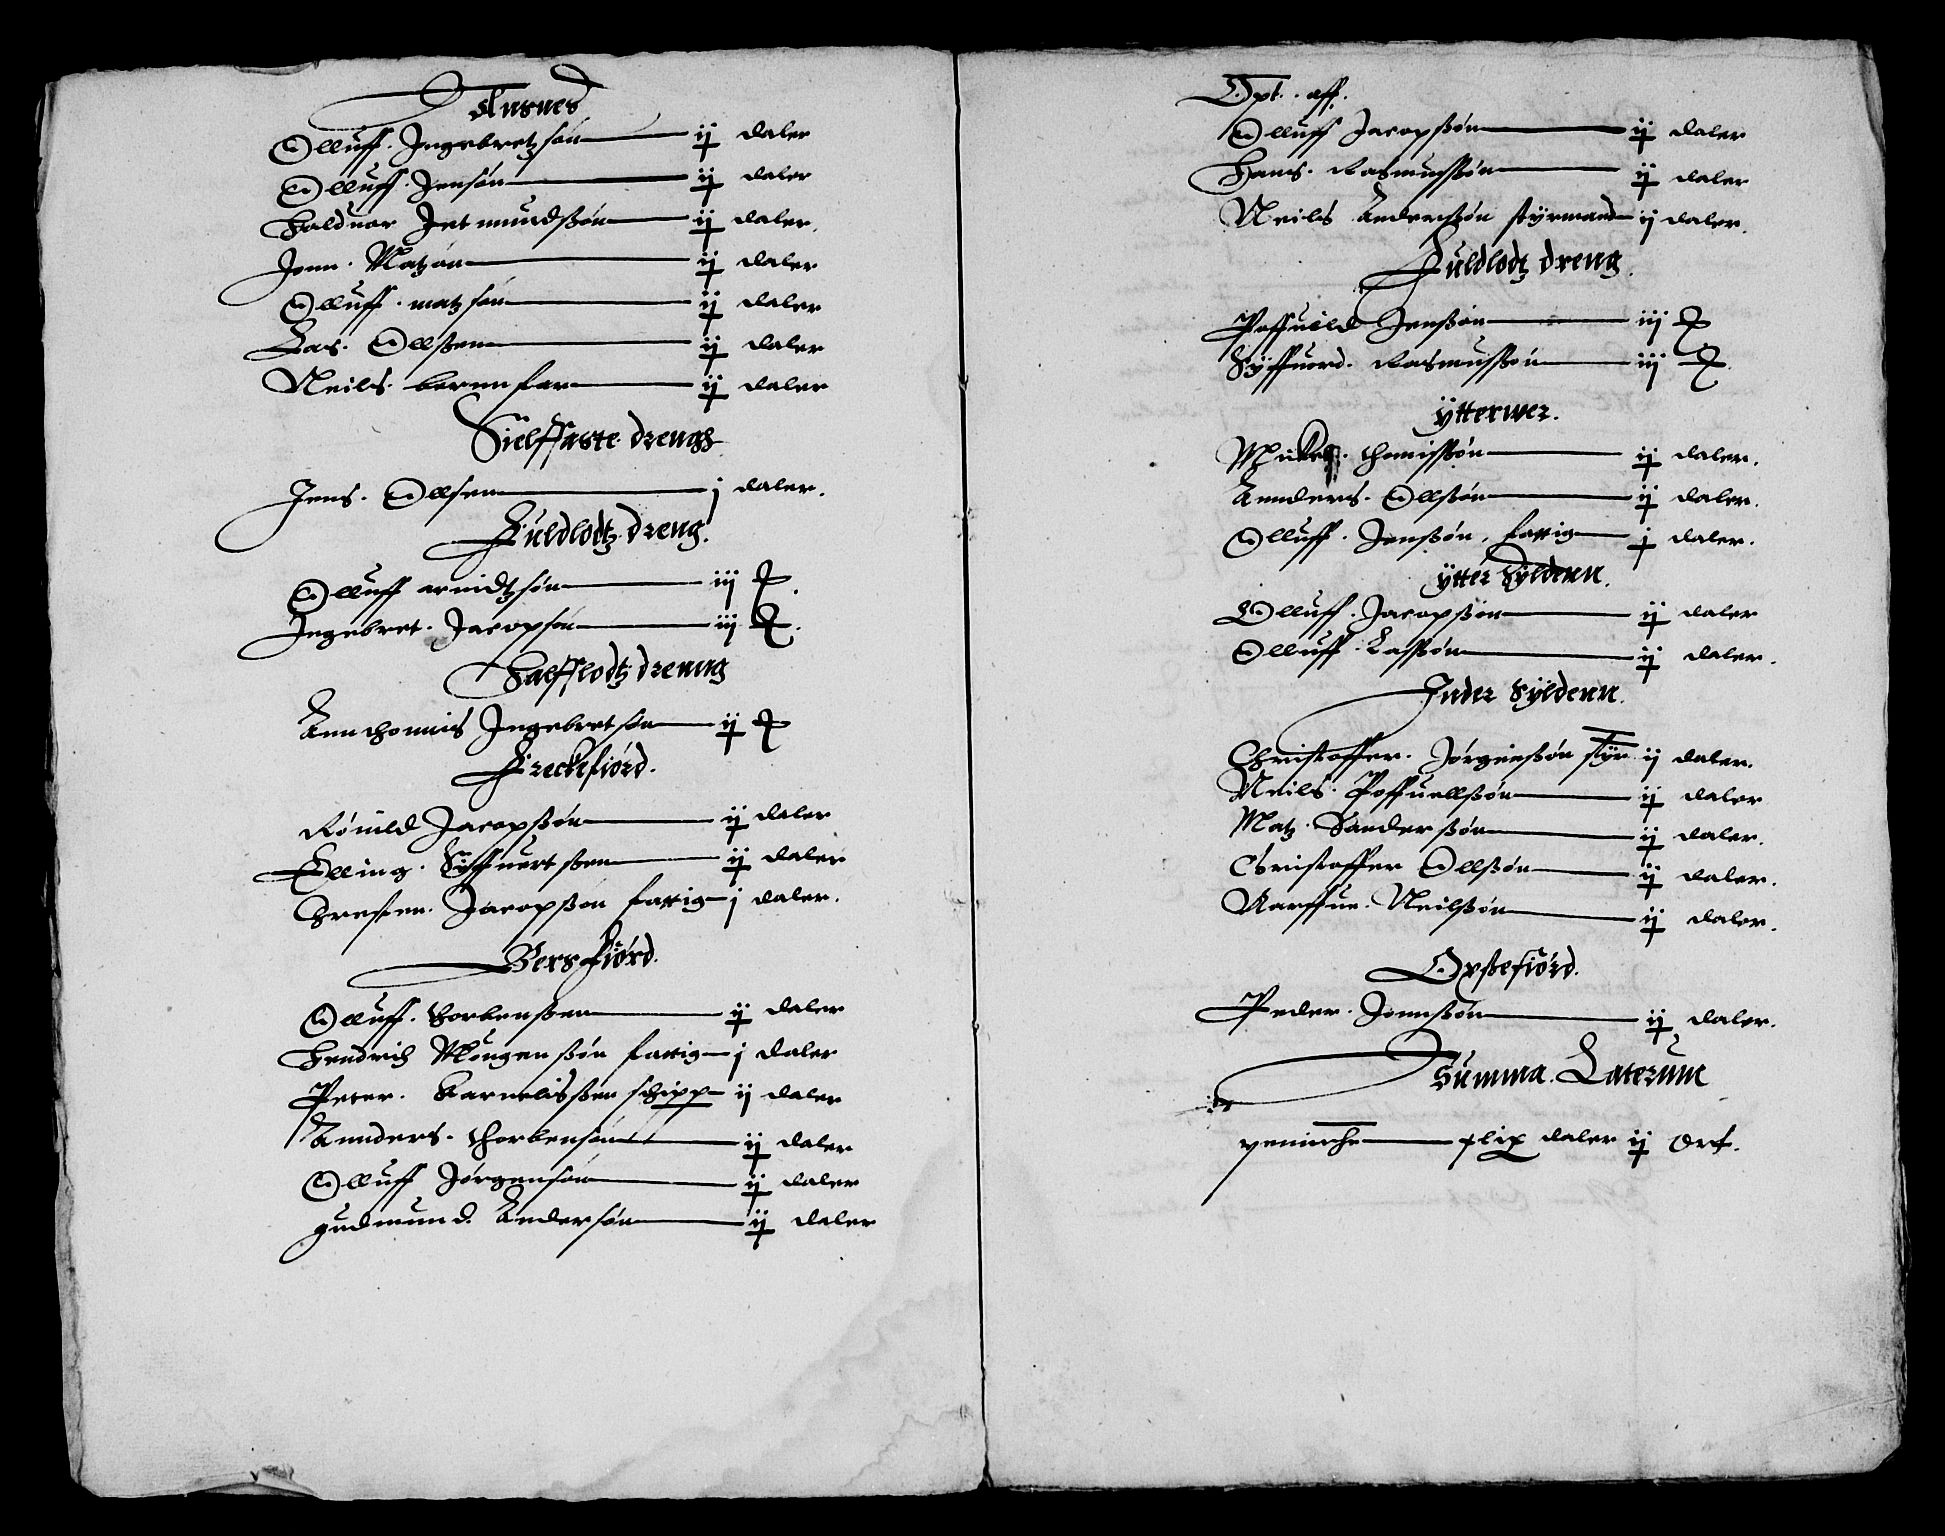 Ansnes
Olluff. Ingebretzsøn ij daler
Olluff. Jensøn ij daler
Halduor Jetmundssøn ij daler.
Jonn. Matzøn ij daler
Olluff. matzsøn ij daler
Las. Ollssen ij daler
Neils. berennfar ij daler
Sielffaste drengh
Jens. Ollsen j daler.
Fuldlodtz dreng.
Olluff arnidtzsøn iij
Ingebret. Jacopsøn iij
Halfflodtz drenng
Annthonius Ingebretsøn ij
Freckefiord.
Rønild Jacopssøn ij daler
Elling. Siffuertssen ij daler
Thresten. Jacopssøn fattig j daler.
Bersfiord.
Olluff. Thorbenssen ij daler
Hendrich Mongenssøn fattig j daler
Peter. Karnelissen schipp ij daler
Annders. Thorbensøn ij daler
Olluff Jørgensøn ij daler
gudmund. Andersøn ij daler
Opt. aff.
Olluff Jacopssøn ij daler
Hans. Rasmussøn ij daler
Neils Anderssøn styrmand ij daler.
Fuldlodtz dreng.
Poffuild Jenssøn iij
Syffuord. Rasmussøn iij
ÿtterwer.
Mickel. thomissøn ij daler.
Annders. Ollssøn ij daler.
Olluff. Jenssøn, fattig j daler.
ÿtter Sÿldenn.
Olluff. Jacopssøn ij daler
Olluff. Lassøn ij daler.
Inder Sÿldenn.
Christoffer. Jørgenssøn styr ij daler.
Neils. Poffuellssøn ij daler
Matz. Sanderssøn ij daler.
Christoffer Ollssøn ij daler.
Narffue. Neilssøn ij daler.
Oxssefiord.
Peder. Jonnssøn ij daler.
Summa. Laterum
penninge lix daler ij ort.